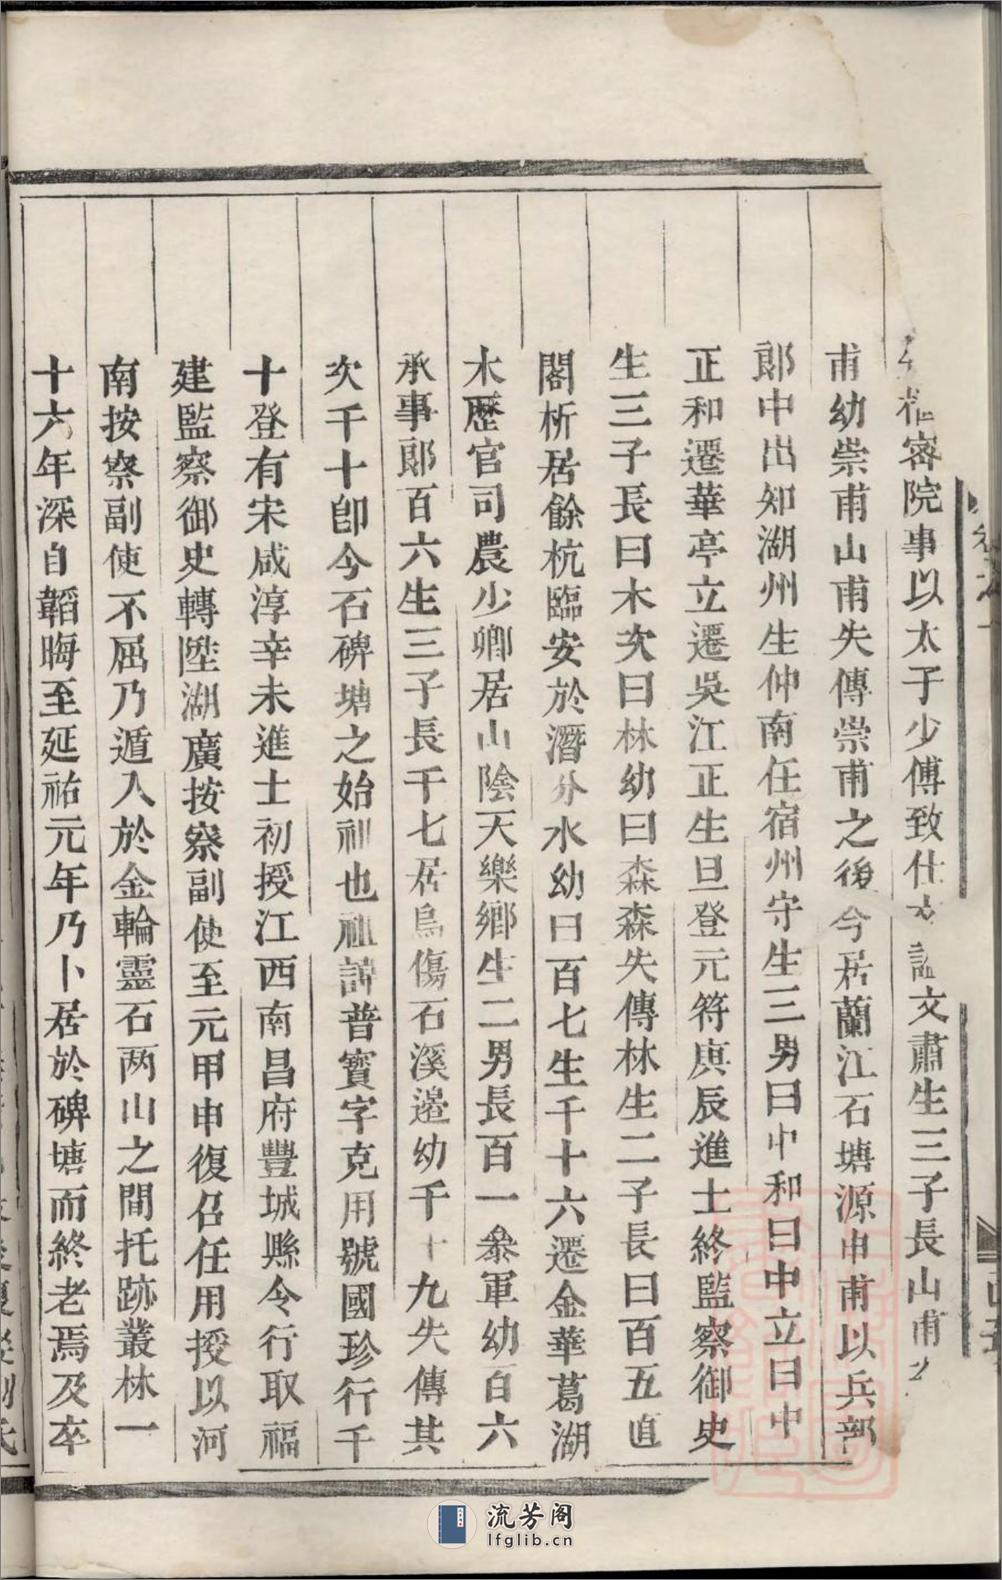 樞密院事以太子少傅致仕諡文肅生三子長山甫
甫幼崇甫山甫失傳崇甫之後今居蘭江石塘源申甫以兵部
郎中出知湖州生仲南任宿州守生三男曰中和曰中立曰中
正和遷華亭立遷吳江正生旦登元符庚辰進士終監察御史
生三子長曰木次曰林幼曰森森失傳林生二子長曰百五直
閣析居餘杭臨安於潛分水幼曰百七生千十六遷金華葛湖
木歷官司農少卿居山陰天樂鄉生二男長百一叅軍幼百六
承事郎百六生三子長千七居烏傷石溪邉幼千十九失傳其
次千十卽今石碑塘之始祖也祖諱普寳字克用號國珍行千
十登有宋咸淳辛未進士初授江西南昌府豐城縣令行取福
建監察御史轉陞湖廣按察副使至元甲申復召任用授以河
南按察副使不屈乃遁入於金輪靈石两山之間托跡叢林一
十六年深自韜晦至延祐元年乃卜居於碑塘而終老焉及卒
流芳阁
lfglib.cn